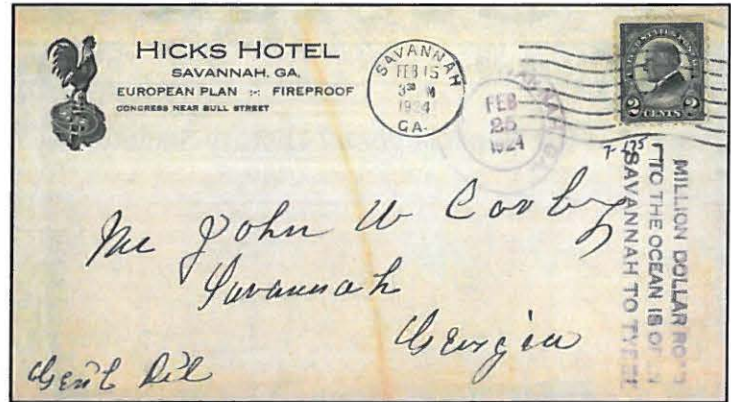 HICKS HOTEL
SAVANNAH, GA.
EUROPEAN PLAN FIREPROOF
CONGRESS NEAR BULL STREET
SAVANNAH
FEB 15
1924
GA.
FEB
25
1924
UNITED STATES POSTAGE
2 CENTS 2
MILLION DOLLAR ROAD
TO THE OCEAN IS OPEN
SAVANNAH TO TYBEE
Mr John W
Savannah
Georgia
Gen'l Del